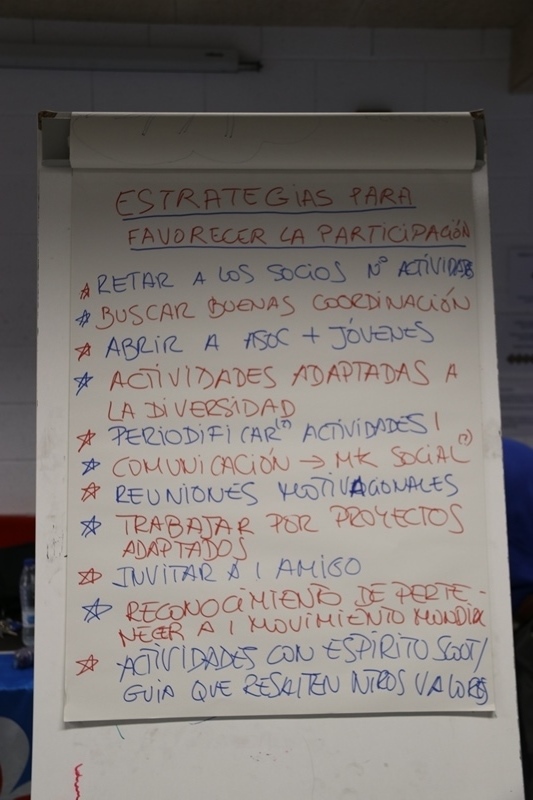 ESTRATEGIAS PARA
FAVORECER LA PARTICIPACIÓN
RETAR A LOS SOCIOS Nº ACTIVIDADES
BUSCAR BUENAS COORDINACIÓN
ABRIR A ASOC + JÓVENES
ACTIVIDADES ADAPTADAS A
LA DIVERSIDAD
PERIODIFICAR(?) ACTIVIDADES
COMUNICACIÓN → MK SOCIAL(?)
REUNIONES MOTIVACIONALES
TRABAJAR POR PROYECTOS
ADAPTADOS
INVITAR A 1 AMIGO
RECONOCIMIENTO DE PERTE-
NECER A 1 MOVIMIENTO MUNDIAL
ACTIVIDADES CON ESPÍRITO SCOUT/
GUIA QUE RESALTEN NTROS VALORES